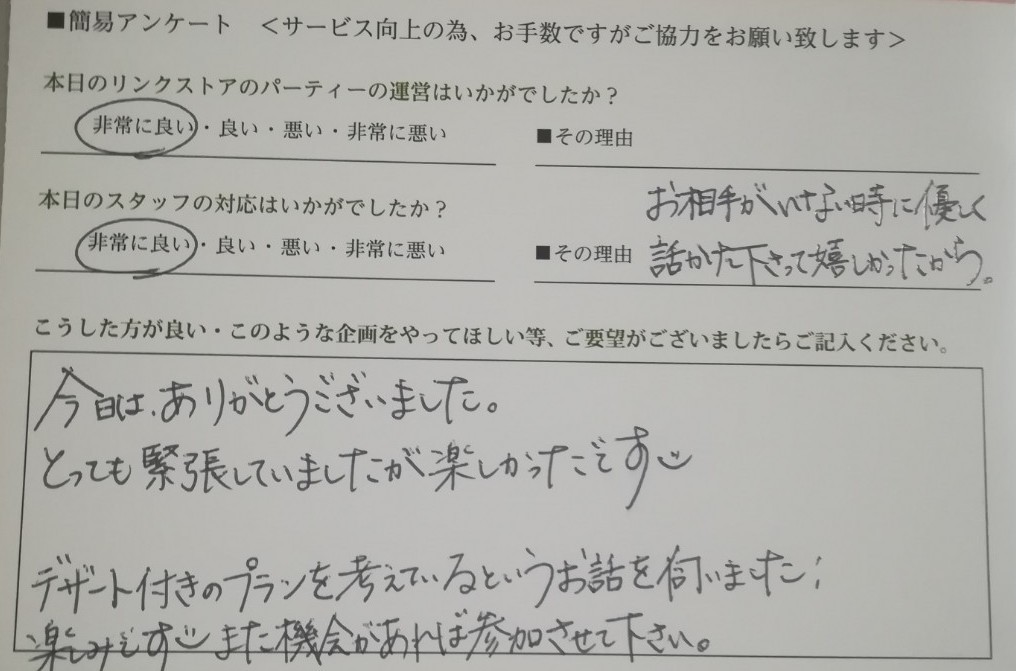 ■簡易アンケート <サービス向上の為、お手数ですがご協力をお願い致します>
本日のリンクストアのパーティーの運営はいかがでしたか?
非常に良い・良い・悪い・非常に悪い ■その理由
本日のスタッフの対応はいかがでしたか?
非常に良い・良い・悪い・非常に悪い ■その理由
お相手がいない時に優しく
話かけて下さって嬉しかったから。
こうした方が良い・このような企画をやってほしい等、ご要望がございましたらご記入ください。
今日は、ありがとうございました。
とっても緊張していましたが楽しかったです
デザート付きのプランを考えているというお話を伺いました!
楽しみです また機会があれば参加させて下さい。